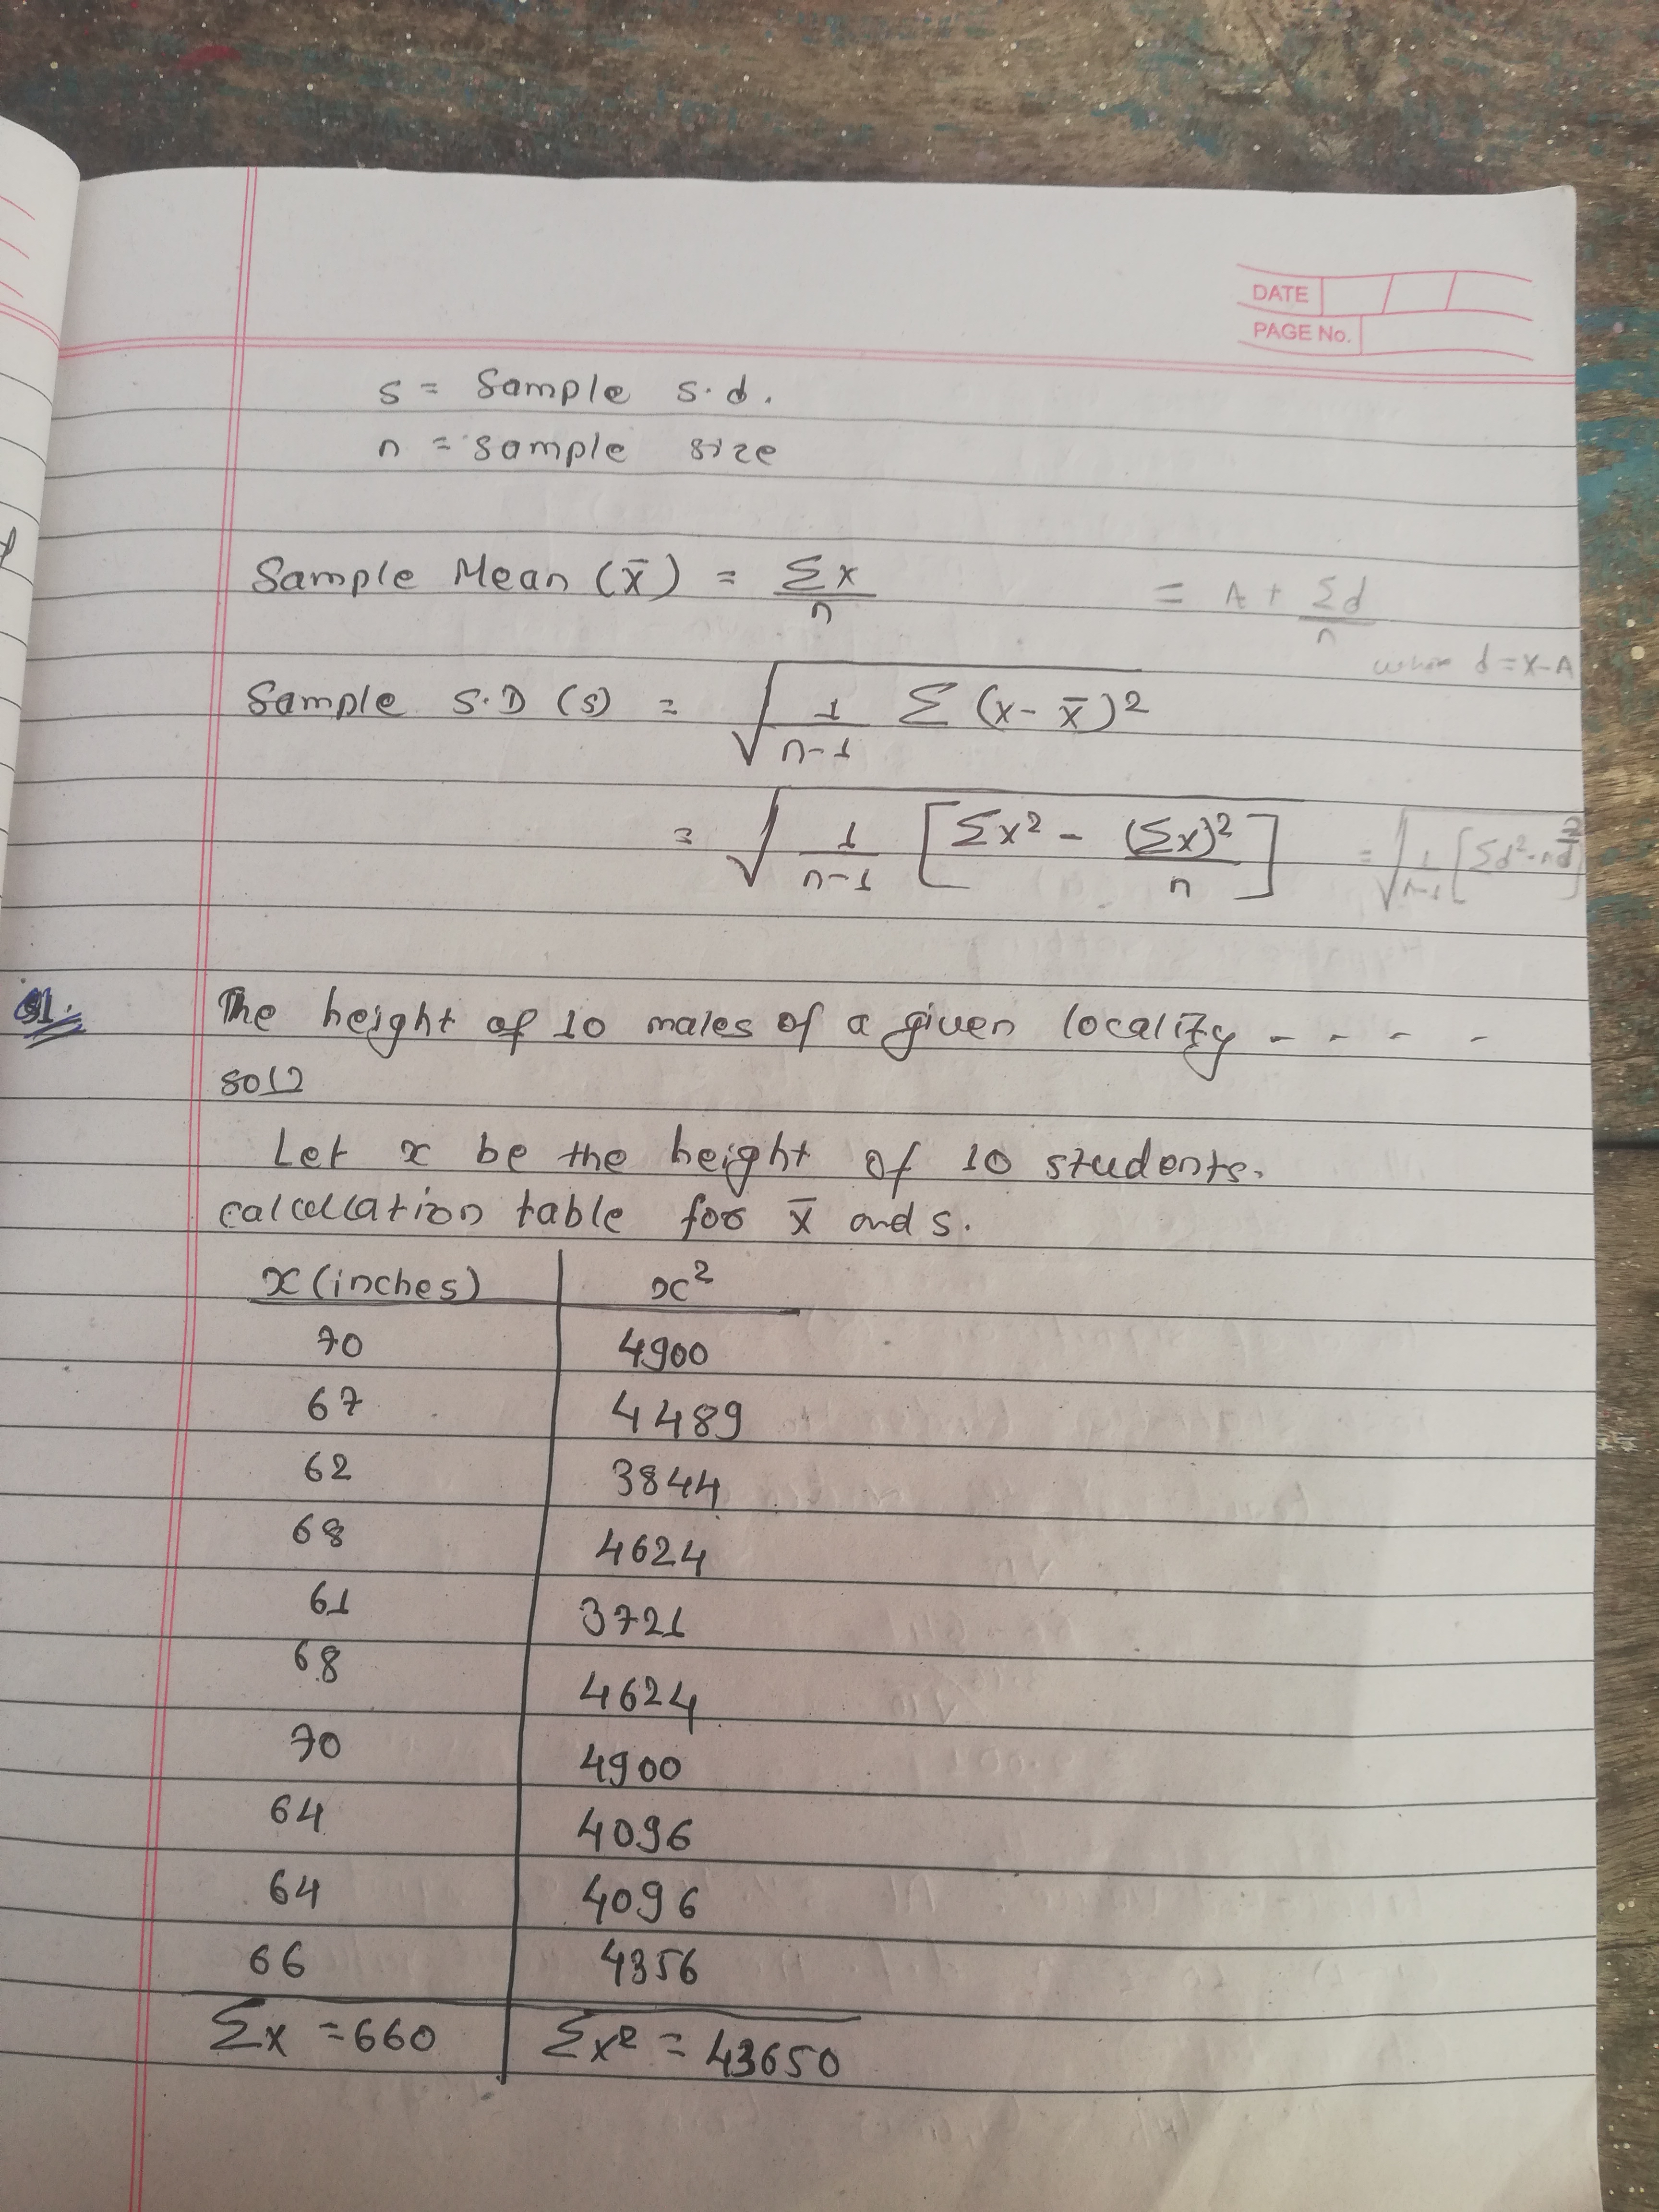 DATE
PAGE No.
s = Sample s.d.
n = sample size
Sample Mean (x̄) = Σx/n = A + Σd/n
where d = x-A
Sample S.D (s) = √(1/(n-1) Σ(x-x̄)²)
= √(1/(n-1) [Σx² - (Σx)²/n]) = √(1/(n-1) [Σd² - nd̄²])
Q1. The height of 10 males of a given locality - - - -
soln
Let x be the height of 10 students.
calculation table for x̄ and s.
x (inches) x²
70 4900
67 4489
62 3844
68 4624
61 3721
68 4624
70 4900
64 4096
64 4096
66 4356
Σx = 660 Σx² = 43650